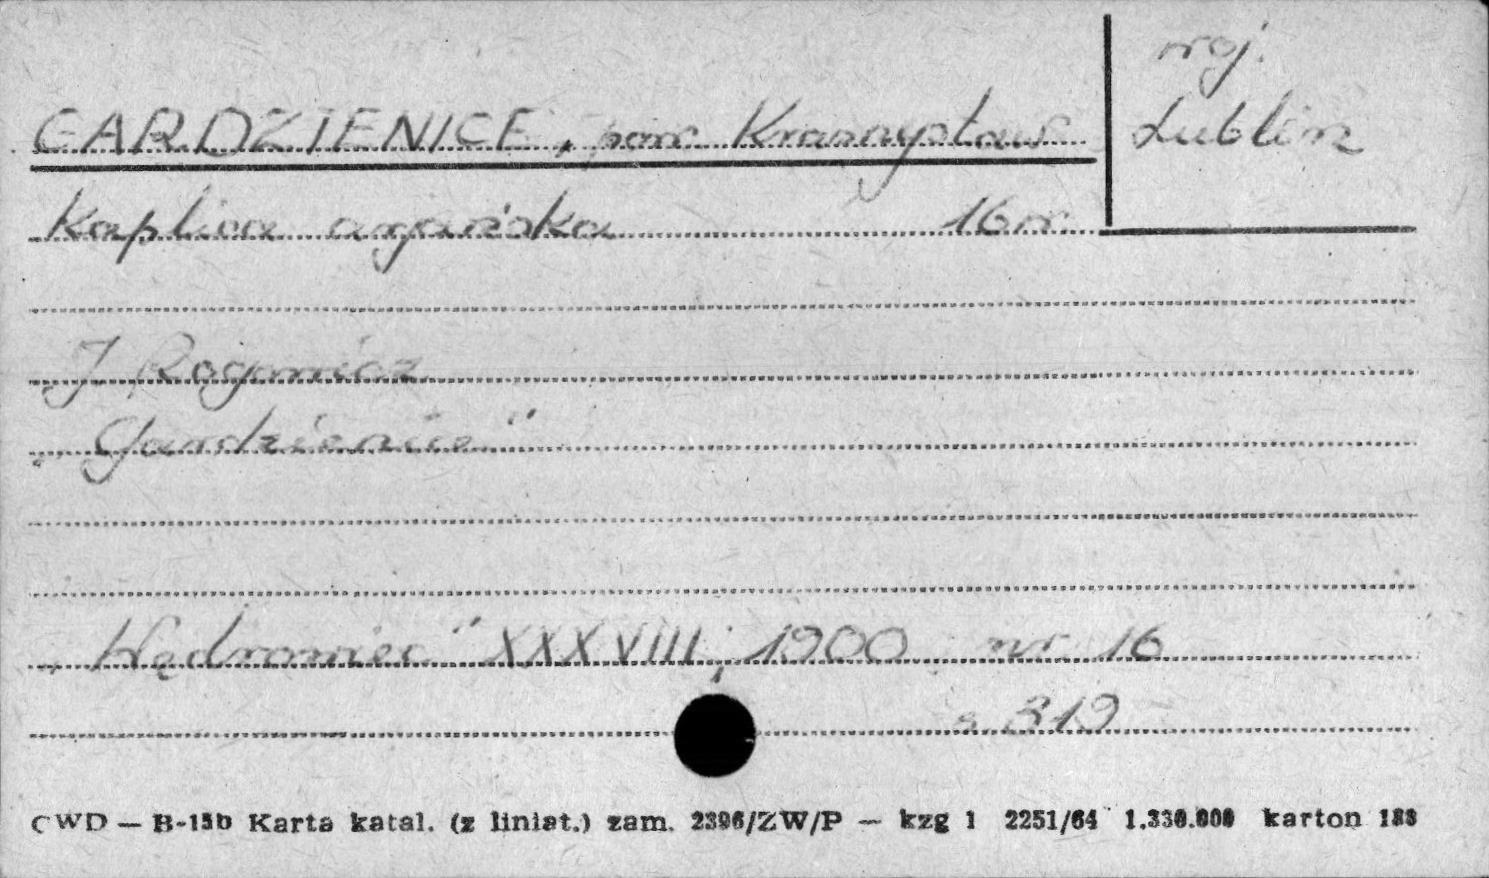 woj.
GARDZIENICE, pow. Krasnystaw Lublin
Kaplica ariańska 16 w.
J. Rogowicz
„Gardzienice"
„Wędrowiec" XXXVIII, 1900 nr 16
s. 319
CWD — B-15b Karta katal. (z liniat.) zam. 2396/ZW/P — kzg 1 2251/64 1.330.000 karton